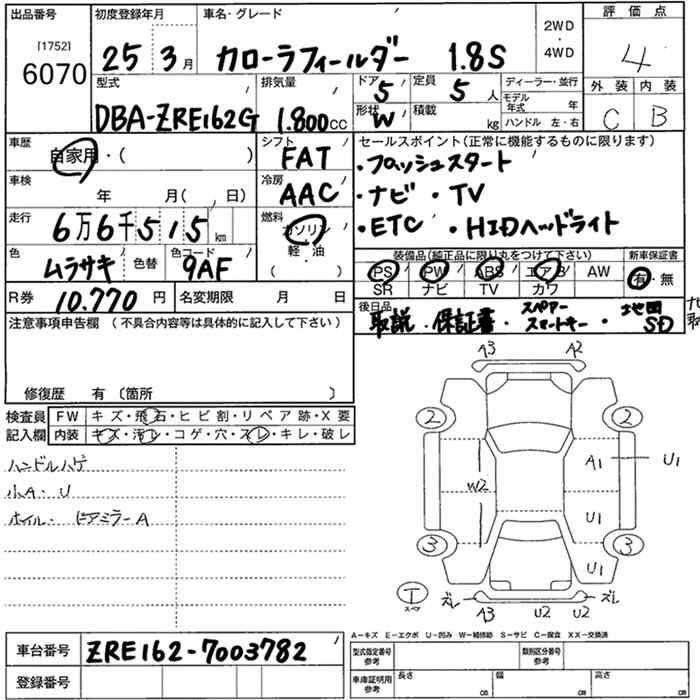 出品番号 初度登録年月 車名・グレード 2WD・4WD 評価点
[1752]
6070 25 3月 カローラフィールダー 1.8S 4
型式 排気量 ドア 5 定員 5人 ディーラー・並行 外装 内装
DBA-ZRE162G 1.800cc 形状 W 積載 kg モデル年式 年 C B
ハンドル 左・右
車歴 自家用・( ) シフト FAT セールスポイント(正常に機能するものに限ります)
・フロッシュスタート
車検 年 月( 、 日) 冷房 AAC ・ナビ ・TV
走行 6万6千515km 燃料 ガソリン ・ETC ・HIDヘッドライト
軽・油
( )
色 ムラサキ 色替 色コード 9AF 装備品(純正品に限り丸をつけて下さい) 新車保証書
PS PW ABS エアB AW 有・無
SR ナビ TV カワ
R券 10.770円 名変期限 月 日 後日品
取説・保証書・スペアースマートキー・地図SD
注意事項申告欄 (不具合内容等は具体的に記入して下さい)
修復歴 有 〔箇所 〕
検査員 FW キズ・飛石・ヒビ割・リペア跡・X要
記入欄 内装 キズ・汚レ・コゲ・穴・スレ・キレ・破レ
ハンドルハゲ
小A・U
ホイル・ドアミラーA
A3 A2
2 2
A1 U1
W2
U1
3 3
U1
T スペア ズレ A3 U2 U2 ズレ
A-キズ E-エクボ U-凹み W-補修跡 S-サビ C-腐食 XX-交換済
車台番号 ZRE162-7003782 型式指定番号参考 類別区分番号参考
登録番号 車庫証明用参考 長さ cm 幅 cm 高さ cm